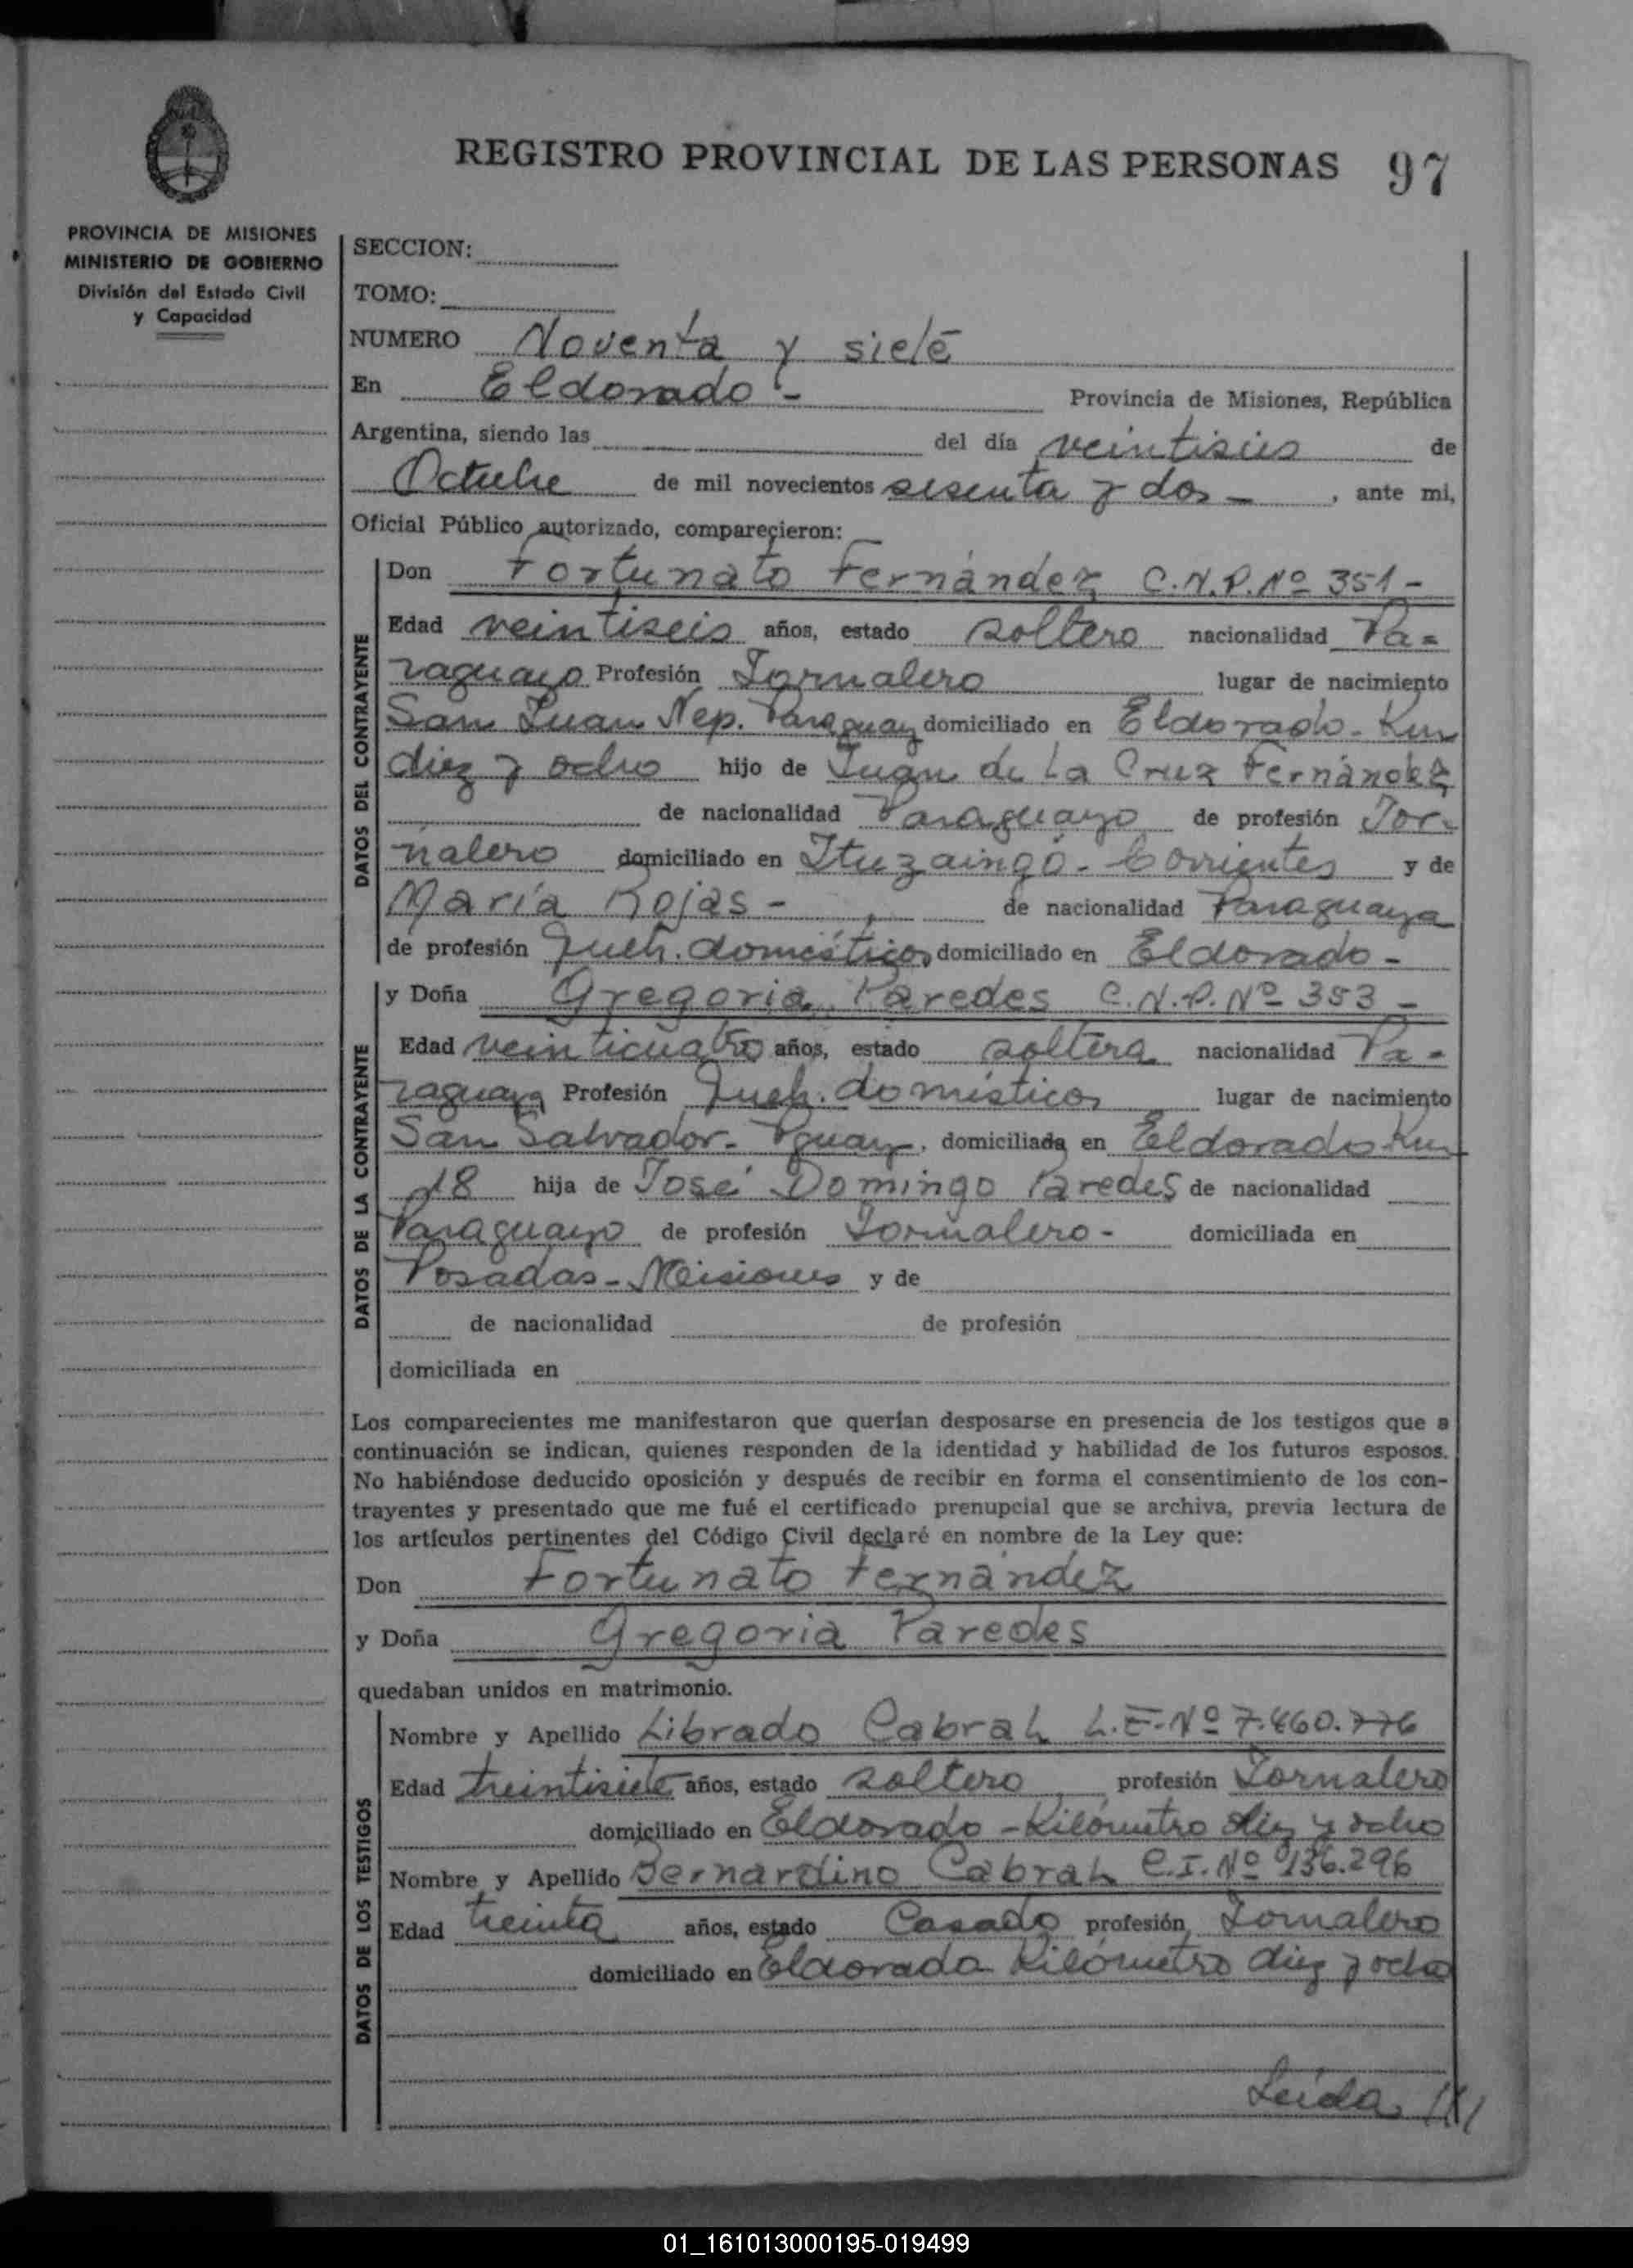 REGISTRO PROVINCIAL DE LAS PERSONAS 97
PROVINCIA DE MISIONES
MINISTERIO DE GOBIERNO
División del Estado Civil
y Capacidad
SECCION:
TOMO:
NUMERO Noventa y siete
En Eldorado - Provincia de Misiones, República
Argentina, siendo las del día veintiseis de
Octubre de mil novecientos sesenta y dos - , ante mi,
Oficial Público autorizado, comparecieron:
DATOS DEL CONTRAYENTE
Don Fortunato Fernández C.N.P. Nº 351 -
Edad veintiseis años, estado soltero nacionalidad Pa=
raguayo Profesión Jornalero lugar de nacimiento
San Juan Nep. Paraguay domiciliado en Eldorado - Km
diez y ocho hijo de Juan de La Cruz Fernández
de nacionalidad Paraguayo de profesión Jor-
nalero domiciliado en Ituzaingó - Corrientes y de
María Rojas - de nacionalidad Paraguaya
de profesión Queh. domésticos domiciliado en Eldorado -
DATOS DE LA CONTRAYENTE
y Doña Gregoria Paredes C.N.P. Nº 353 -
Edad veinticuatro años, estado soltera nacionalidad Pa-
raguaya Profesión Queh. domésticos lugar de nacimiento
San Salvador - Pguay. domiciliada en Eldorado - Km
18 hija de José Domingo Paredes de nacionalidad
Paraguayo de profesión Jornalero - domiciliada en
Posadas - Misiones y de
de nacionalidad de profesión
domiciliada en
Los comparecientes me manifestaron que querían desposarse en presencia de los testigos que a
continuación se indican, quienes responden de la identidad y habilidad de los futuros esposos.
No habiéndose deducido oposición y después de recibir en forma el consentimiento de los con-
trayentes y presentado que me fué el certificado prenupcial que se archiva, previa lectura de
los artículos pertinentes del Código Civil declaré en nombre de la Ley que:
Don Fortunato Fernández
y Doña Gregoria Paredes
quedaban unidos en matrimonio.
DATOS DE LOS TESTIGOS
Nombre y Apellido Librado Cabral L.E. Nº 7.460.776
Edad treintisiete años, estado soltero profesión Jornalero
domiciliado en Eldorado - Kilómetro diez y ocho
Nombre y Apellido Bernardino Cabral C.I. Nº 136.296
Edad treinta años, estado Casado profesión Jornalero
domiciliado en Eldorado Kilómetro diez y ocho
Leida ///
01_161013000195-019499